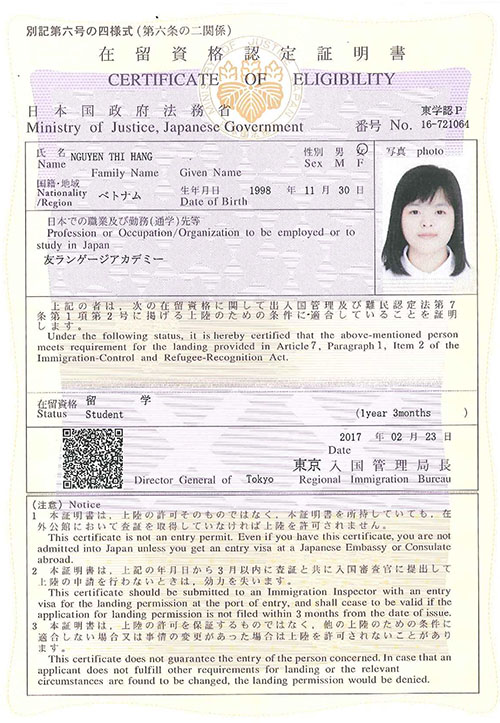 別記第六号の四様式(第六条の二関係)
在留資格認定証明書
CERTIFICATE OF ELIGIBILITY
日本国政府法務省
東学認P
Ministry of Justice, Japanese Government
番号 No. 16-721064
氏名 NGUYEN THI HANG
性別 男 女
写真 photo
Name Family Name Given Name
Sex M F
国籍・地域
Nationality ベトナム
/Region
生年月日 1998 年 11 月 30 日
Date of Birth
日本での職業及び勤務(通学)先等
Profession or Occupation/Organization to be employed or to
study in Japan
友ランゲージアカデミー
上記の者は、次の在留資格に関して出入国管理及び難民認定法第7
条第1項第2号に掲げる上陸のための条件に適合していることを証明
します。
Under the following status, it is hereby certified that the above-mentioned person
meets requirement for the landing provided in Article 7, Paragraph 1, Item 2 of the
Immigration-Control and Refugee-Recognition Act.
在留資格 留 学
Status Student
(1year 3months )
2017 年 02 月 23 日
Date
東京 入国管理局長
Director General of Tokyo Regional Immigration Bureau
(注意) Notice
1 本証明書は、上陸の許可そのものではなく、本証明書を所持していても、在
外公館において査証を取得していなければ上陸を許可されません。
This certificate is not an entry permit. Even if you have this certificate, you are not
admitted into Japan unless you get an entry visa at a Japanese Embassy or Consulate
abroad.
2 本証明書は、上記の年月日から3月以内に査証と共に入国審査官に提出して
上陸の申請を行わないときは、効力を失います。
This certificate should be submitted to an Immigration Inspector with an entry
visa for the landing permission at the port of entry, and shall cease to be valid if the
application for landing permission is not filed within 3 months from the date of issue.
3 本証明書は、上陸の許可を保証するものではなく、他の上陸のための条件に
適合しない場合又は事情の変更があった場合は上陸を許可されないことがあり
ます。
This certificate does not guarantee the entry of the person concerned. In case that an
applicant does not fulfill other requirements for landing or the relevant
circumstances are found to be changed, the landing permission would be denied.